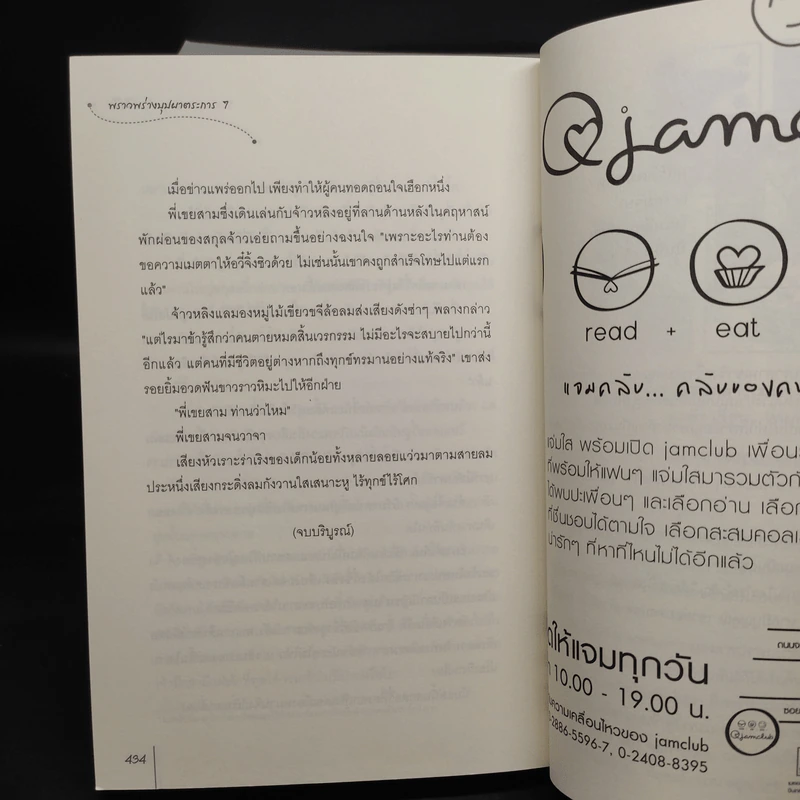 พราวพร่างบุปผาตระการ 7
เมื่อข่าวแพร่ออกไป เพียงทำให้ผู้คนทอดถอนใจเฮือกหนึ่ง
พี่เขยสามซึ่งเดินเล่นกับจ้าวหลิงอยู่ที่ลานด้านหลังในคฤหาสน์
พักผ่อนของสกุลจ้าวเอ่ยถามขึ้นอย่างฉงนใจ "เพราะอะไรท่านต้อง
ขอความเมตตาให้อวี๋จิ้งซิวด้วย ไม่เช่นนั้นเขาคงถูกสำเร็จโทษไปแต่แรก
แล้ว"
จ้าวหลิงแลมองหมู่ไม้เขียวขจีล้อลมส่งเสียงดังซ่าๆ พลางกล่าว
"แต่ไรมาข้ารู้สึกว่าคนตายหมดสิ้นเวรกรรม ไม่มีอะไรจะสบายไปกว่านี้
อีกแล้ว แต่คนที่มีชีวิตอยู่ต่างหากถึงทุกข์ทรมานอย่างแท้จริง" เขาส่ง
รอยยิ้มอวดฟันขาวราวหิมะไปให้อีกฝ่าย
"พี่เขยสาม ท่านว่าไหม"
พี่เขยสามจนวาจา
เสียงหัวเราะร่าเริงของเด็กน้อยทั้งหลายลอยแว่วมาตามสายลม
ประหนึ่งเสียงกระดิ่งลมกังวานใสเสนาะหู ไร้ทุกข์ไร้โศก
(จบบริบูรณ์)
434
@jamc
read + eat
แจมคลับ... คลับของค
แจ่มใส พร้อมเปิด jamclub เพื่อน
ที่พร้อมให้แฟนๆ แจ่มใสมารวมตัวก
ได้พบปะเพื่อนๆ และเลือกอ่าน เลือก
ที่ชื่นชอบได้ตามใจ เลือกสะสมคอล
น่ารักๆ ที่หาที่ไหนไม่ได้อีกแล้ว
ให้แจมทุกวัน
10.00 - 19.00 น.
ความเคลื่อนไหวของ jamclub
-2886-5596-7, 0-2408-8395
@jamclub